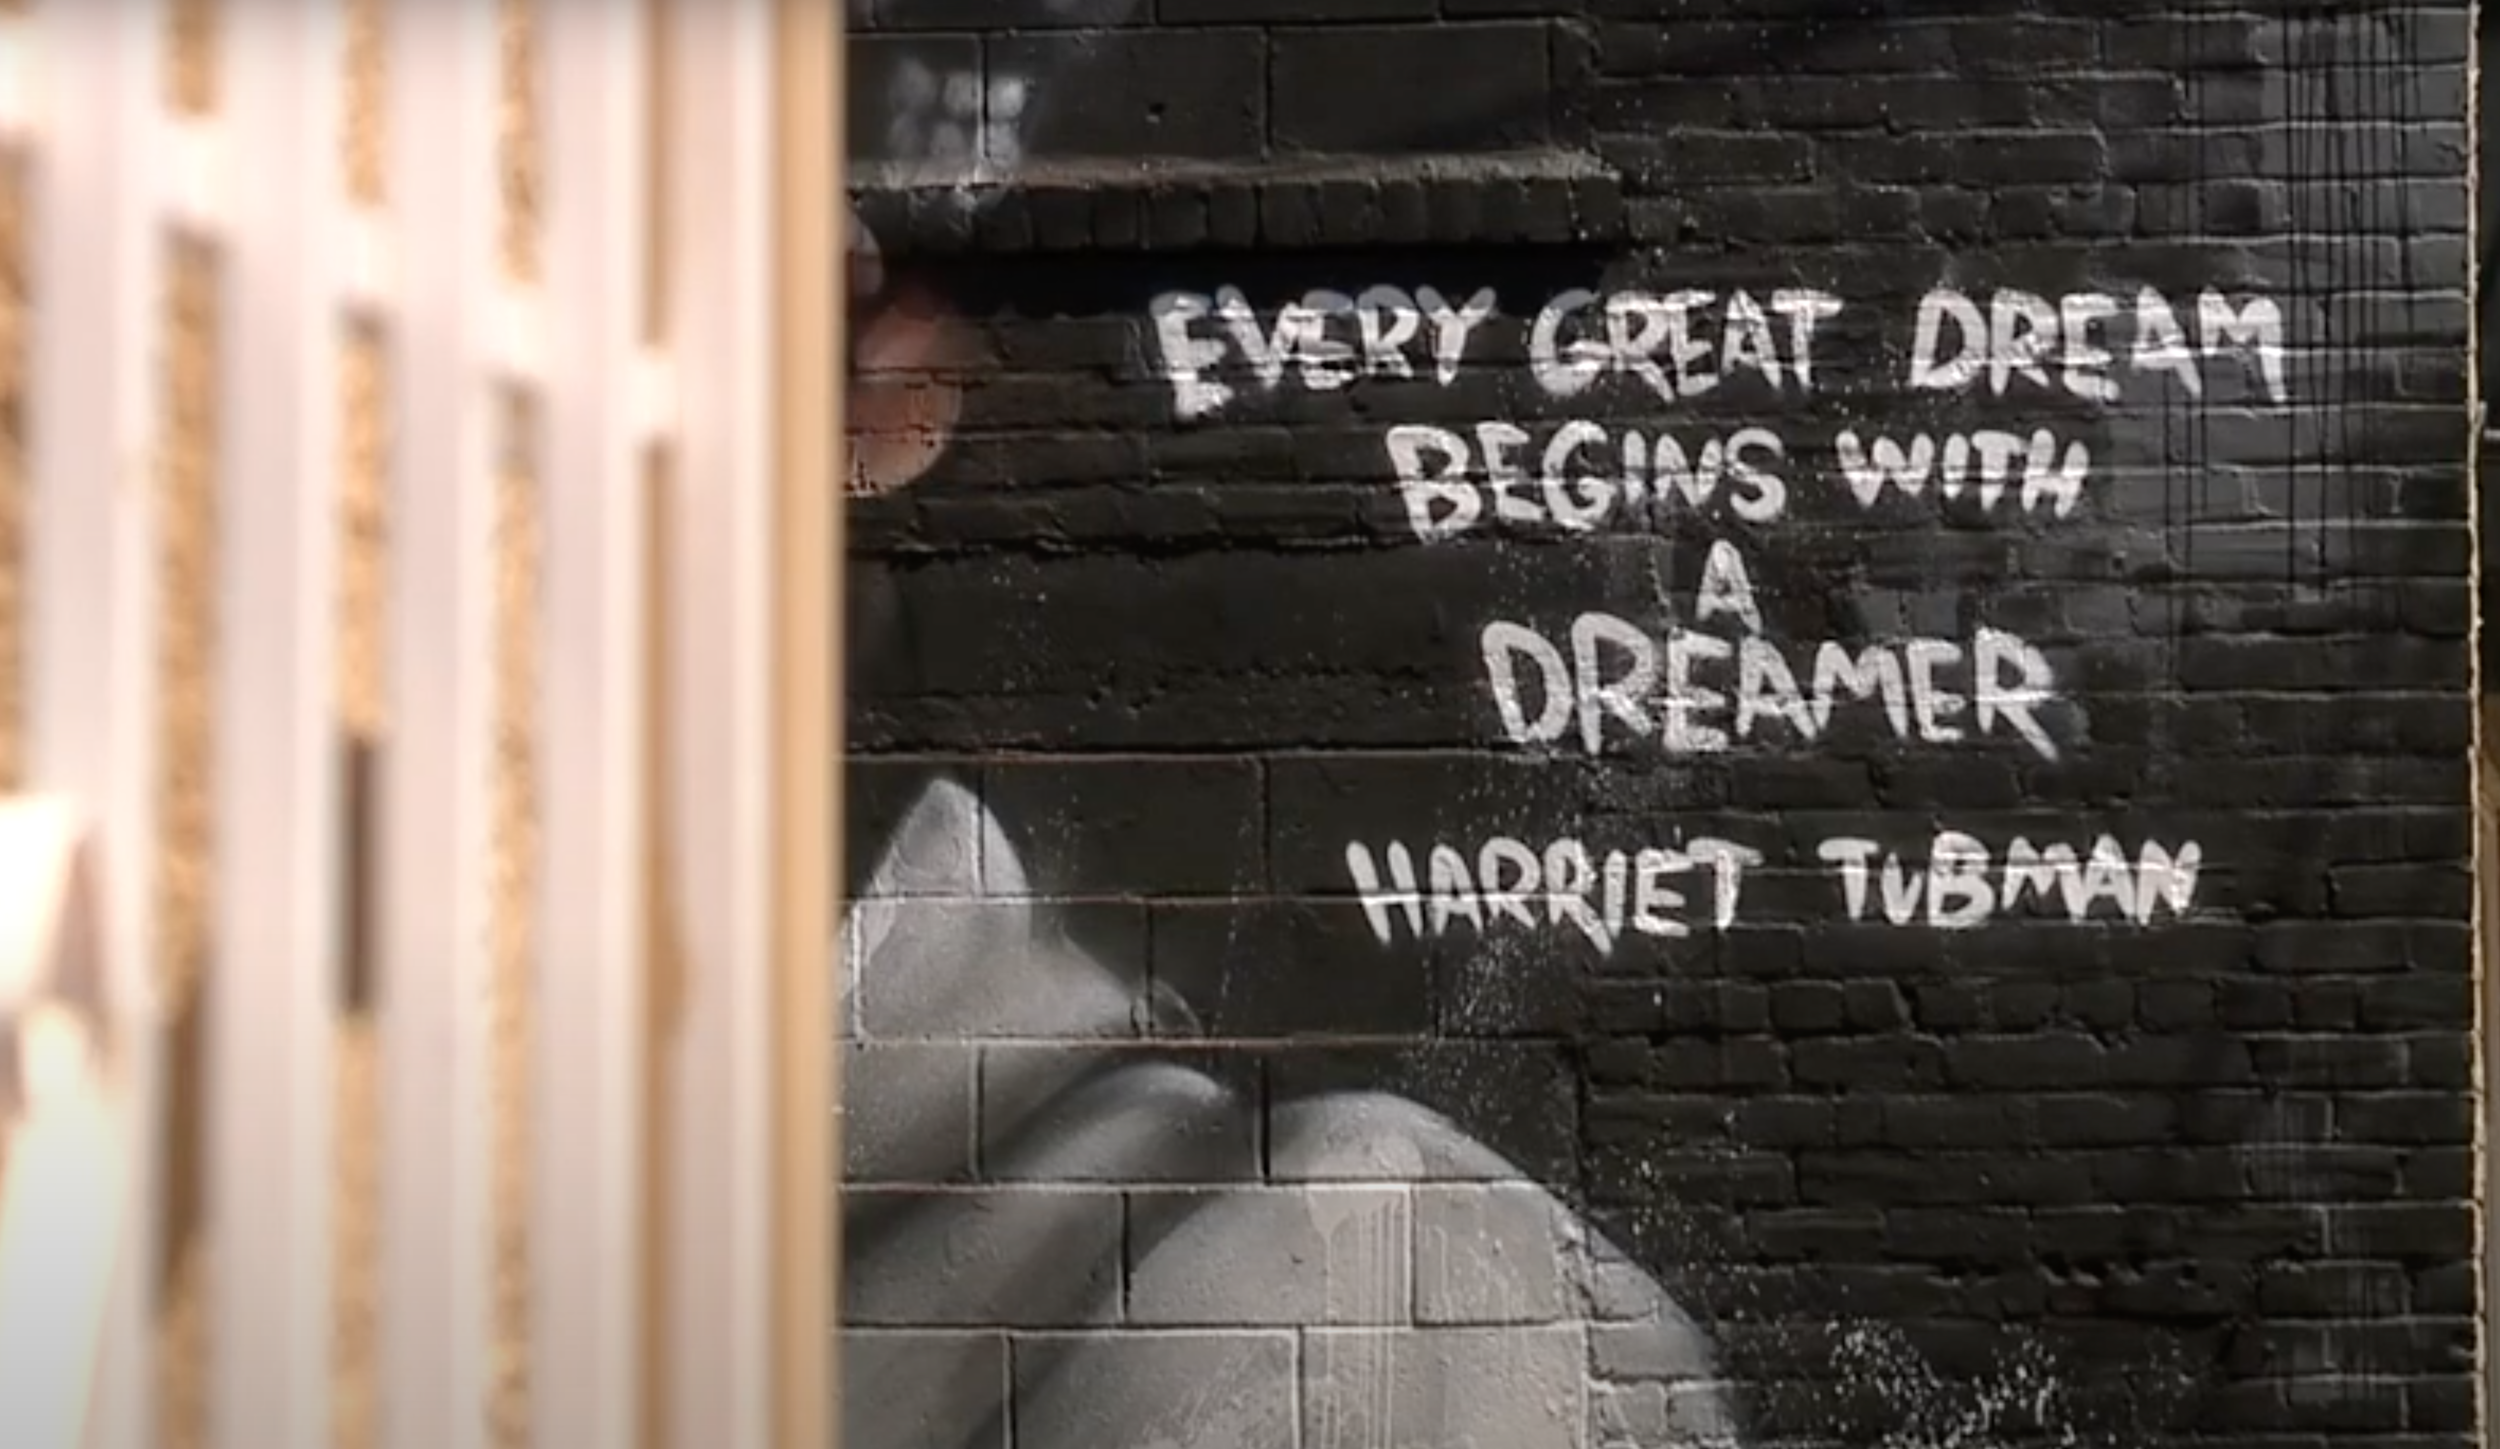 EVERY GREAT DREAM
BEGINS WITH
A
DREAMER
HARRIET TUBMAN